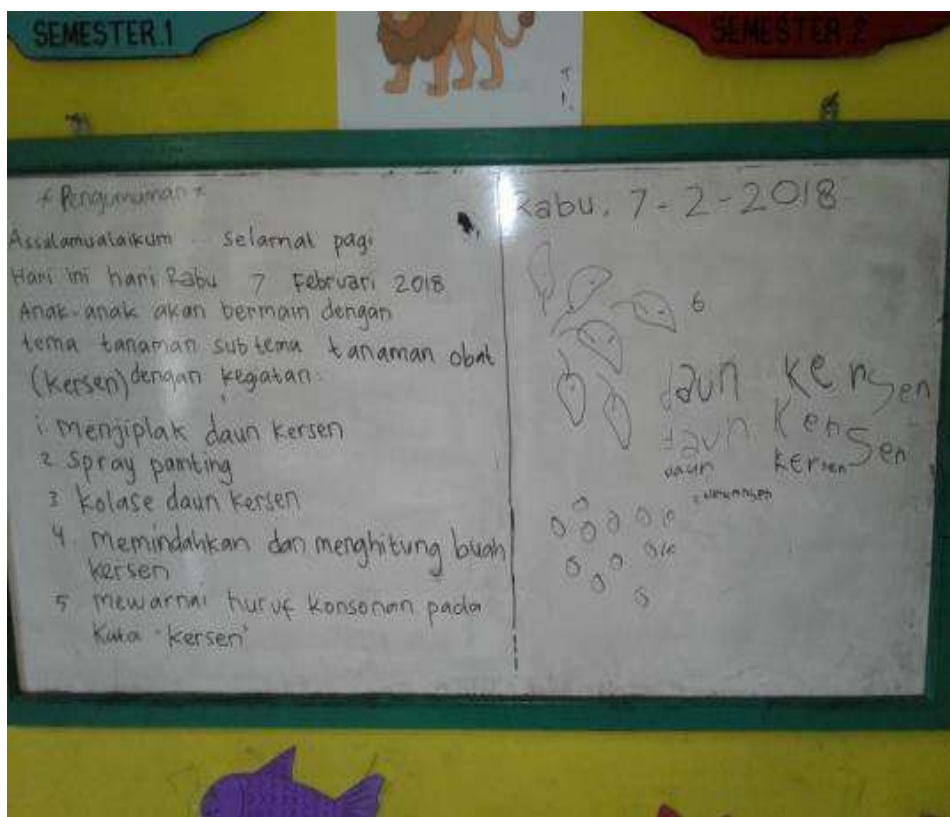 SEMESTER.1
SEMESTER.2
* Pengumuman *
Assalamualaikum selamat pagi
Hari ini hari Rabu 7 Februari 2018
Anak-anak akan bermain dengan
tema tanaman subtema tanaman obat
(kersen) dengan kegiatan:
1. menjiplak daun kersen
2. Spray panting
3 kolase daun kersen
4. memindahkan dan menghitung buah
kersen
5 mewarnai huruf konsonan pada
Kata "kersen"
Rabu, 7-2-2018
6
daun kersen
daun kersen
daun kersen